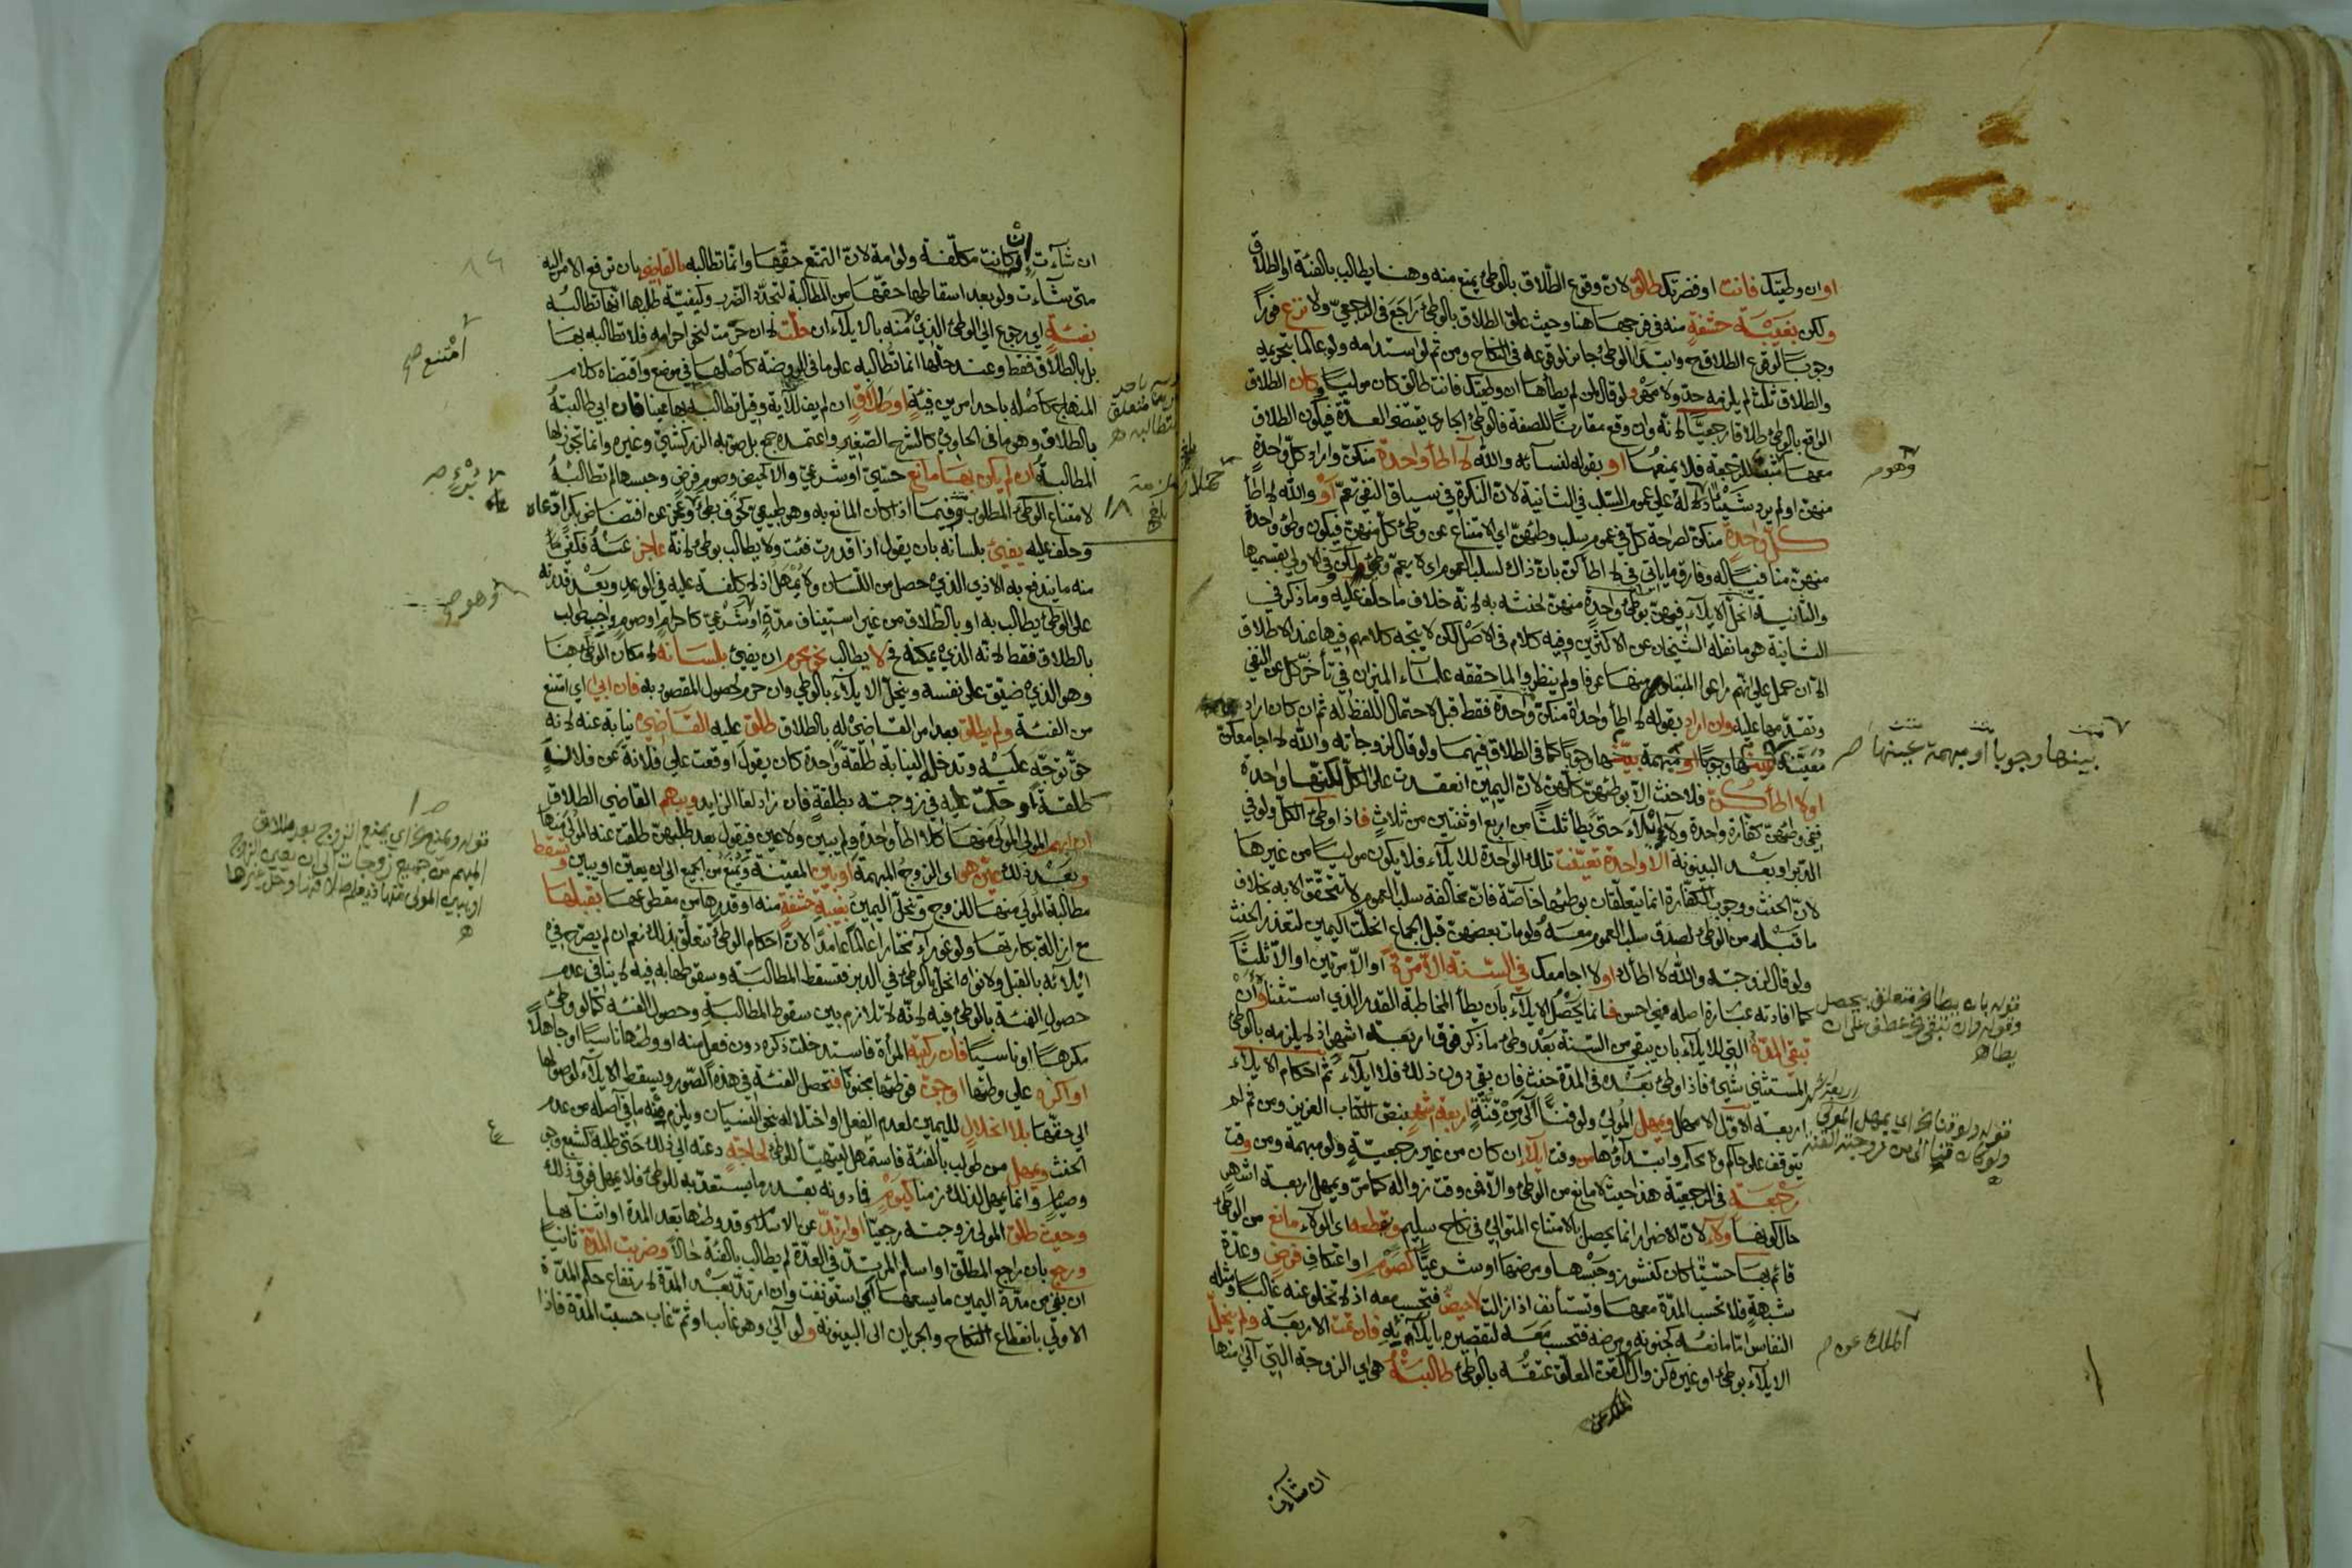 او ان وطيتك فانت او فضرتك طالق لان وقوع الطلاق بالوطئ يمنع منه وهنا يطالب بالفئة او الطلاق
ولكن بغيبة حشفة منه في فرجها هنا وحيث علق الطلاق بالوطئ راجع في الرجعي ولا نزع فوراً
وجوبا لوقوع الطلاق ح وابتدا الوطئ جائز لوقوعه في النكاح ومن ثم لو استدامه ولو عالما بتحريمه
والطلاق ثلث لم يلزمه حد ولا مهر ولو قال لمن لم يطأها ان وطيتك فانت طالق كان موليا وكان الطلاق
الواقع بالوطئ طلاقا رجعيا لانه وان وقع مقارنا للصفة فالوطئ الجاري يقتضي العدة فيكون الطلاق
معها مثبتا للرجعة فلا يمنعها او بقوله لنسائه والله لا اطأ واحدة منكن واراد كل واحدة
منهن او لم يرد شيئا دلالة على عموم السلب في الثانية لان النكرة في سياق النفي تعم او والله لا اطأ
كل واحدة منكن لصراحة كل في عموم سلب وطئهن اي الامتناع عن وطئ كل منهن فيكون وطئ واحدة
منهن منافيا له وفارق ما ياتي في لا اطأكن بان ذاك لسلب العموم اي لا يعم وطئي لكن في الاولى بقسميها
والثانية انحل الايلاء فيهن بوطئ واحدة منهن لحنثه به لانه خلاف ما حلف عليه وما ذكر في
الثانية هو ما نقله الشيخان عن الاكثرين وفيه كلام في الاصل لكن لا يتجه كلامهم فيها عند الاطلاق
الا ان حمل على انهم راعوا المتبادر منها عرفا ولم ينظروا لما حققه علماء الميزان في تأخر كل عن النفي
وتقدمها عليه وان اراد بقوله لا اطأ واحدة منكن واحدة فقط قبل لاحتمال اللفظ له ثم ان كان اراد
معينة بينها وجوبا او مبهمة عينها وجوبا كما في الطلاق فيهما ولو قال لزوجاته والله لا اجامعكن
او لا اطأكن فلا حنث الا بوطئهن كلهن لان اليمين انعقدت على الكل
ففي وطئهن كفارة واحدة ولا ايلاء حتى يطأ ثلثا من اربع او ثنتين من ثلاث فاذا وطئ الكل ولو في
الدبر او بعد البينونة الا واحدة تعينت تلك الواحدة للايلاء فلا يكون موليا من غيرها
لان الحنث ووجوب الكفارة انما يتعلقان بوطئها خاصة فان مخالفة سلب العموم لا تتحقق الا به بخلاف
ما قبله من الوطئ لصدق سلب العموم معه ولو مات بعضهن قبل الجماع انحلت اليمين لتعذر الحنث
ولو قال لزوجته والله لا اطأك او لا اجامعك في السنة الا مرة او الا مرتين او الا ثلثا
كما افادته عبارة اصله فهي احسن فانما يحصل الايلاء بان يطأ المخاطبة القدر الذي استثناه وان
تبقى المدة التي للايلاء بان يبقي من السنة بعد وطئ ما ذكر فوق اربعة اشهر اذ لا يلزمه بالوطئ
المستثنى شئ فاذا وطئ بعده في المدة حنث فان بقي دون ذلك فلا ايلاء ثم احكام الايلاء
اربعة الاول الامهال ويمهل المولي ولو قنا اربعة اشهر بنص الكتاب العزيز ومن ثم لم
يتوقف على حاكم ولا يحكم وابتداؤها من وقت ايلاء ان كان من غير رجعية ولو مبهمة ومن وقت
رجعة في الرجعية هذا حيث لا مانع من الوطئ والا فمن وقت زواله كما مر ويمهل اربعة اشهر
حال كونها ولاء لان الاضرار انما يحصل بالامتناع المتوالي في نكاح سليم ويقطعها اي الولاء مانع من الوطئ
قائم بها حسيا كان كنشوز وحبسها ومرضها او شرعيا كصوم او اعتكاف فرض وعدة
شبهة فلا تحسب المدة معها وتستأنف اذا زالت لا حيض فتحسب معه اذ لا تخلو عنه غالبا ومثله
النفاس اما مانعه كجنونه ومرضه فتحسب معه لتقصيره بايلائه فان تمت الاربعة ولم ينحل
الايلاء بوطئ او غيره كزوال القن المعلق عتقه بالوطئ طالبته هي اي الزوجة التي آلى منها
ان شآءت
وهو م
بينها وجوبا او مبهمة عينها
قوله بان يطا الخ متعلق بيحصل
وقوله وان تبقى الخ عطف على ان
يطا ه
قوله ولو قنا الخ اي يمهل المولي
ولو كان قنا الى من زوجته القنة
الملك عن م
ان شآءت وان كانت مكلفة ولو امة لان التمتع حقها وانما تطالبه بالقاضي بان ترفع الامر اليه
متى شاءت ولو بعد اسقاطها حقها من المطالبة لتجدد الضرر وكيفية طلبها انها تطالبه
بفئة اي رجوع الى الوطئ الذي منه بالايلاء ان حلت له ان حرمت لنحو احرامه فلا تطالبه بها
بل بالطلاق فقط وعند حلها انما تطالبه على ما في الروضة كاصلها في موضع واقتضاه كلام
المنهاج كاصله باحد امرين فيئة او طلاق ان لم يفئ للآية وقيل تطالبه بها عينا فان ابى طالبته
بالطلاق وهو ما في الحاوي كالشرح الصغير واعتمده جمع بل صوبه الزركشي وغيره وانما تجوز لها
المطالبة ان لم يكن بها مانع حسي او شرعي والا كحيض وصوم فرض وحبسها لم تطالبه
لامتناع الوطئ المطلوب وفيما اذا كان المانع به وهو طبيعي كخوف بطئ او عجز عن افتضاض بكر ادعاه
وحلف عليه يفيئ بلسانه بان يقول اذا قدرت فئت ولا يطالب بوطئ لانه عاجز عنه فكفى
منه ما يندفع به الاذى الذي حصل من اللسان ولا يمهل اذ لا كلفة عليه في الوعد وبعد قدرته
على الوطئ يطالب به او بالطلاق من غير استيناف مدة او شرعي كاحرام او صوم واجب طولب
بالطلاق فقط لانه الذي يمكنه ح لا يطالب نحو محرم ان يفيئ بلسانه لامكان الوطئ هنا
وهو الذي ضيق على نفسه وينحل الايلاء بالوطئ وان حرم لحصول المقصود به فان ابى اي امتنع
من الفئة ولم يطلق بعد امر القاضي له بالطلاق طلق عليه القاضي نيابة عنه لانه
حق توجه عليه وتدخله النيابة طلقة واحدة كان يقول اوقعت على فلانة عن فلان
طلقة او حكمت عليه في زوجته بطلقة فان زاد لغا الزايد ويبهم القاضي الطلاق
ان ابهم المولي المولى منها كلا اطأ واحدة ولم يبين ولا عين فيقول بعد طلبهن طلقت عنه المولى منها
وبعد ذلك عين هو اي الزوج المبهمة او بين المعينة ويمنع من الجميع الى ان يعين او يبين وتسقط
مطالبة المولى منها للزوج وتنحل اليمين بغيبة حشفة منه او قدرها من مقطوعها بقبلها
مع ازالة بكارتها ولو غوراء مختارا عالما عامدا لان احكام الوطئ تتعلق بذلك نعم ان لم يصرح في
ايلائه بالقبل ولا نواه انحل بالوطئ في الدبر فتسقط المطالبة وسقوطها به فيه لا ينافي عدم
حصول الفئة بالوطئ فيه لانه لا تلازم بين سقوط المطالبة وحصول الفئة كما لو وطئ
مكرها او ناسيا فان ركبته المرأة فاستدخلت ذكره دون فعل منه او وطئها ناسيا او جاهلا
او اكره على وطئها او جن فوطئها مجنونا فتحصل الفئة في هذه الصور ويسقط الايلاء لوصولها
الى حقها بلا انحلال لليمين لعدم الفعل او اختلاله بنحو النسيان ويلزم منه ما في اصله من عدم
الحنث ويمهل من طولب بالفئة فاستمهل ليتهيأ للوطئ لحاجة دعته الى ذلك حتى طلبه كشبع وجوع
وصيام وانما يمهل لذلك زمنا كيوم فما دونه بقدر ما يستعد به للوطئ فلا يمهل فوق ذلك
وحيث طلق المولي زوجته رجعيا او ارتد عن الاسلام وقد وطئها بعد المدة او اثنائها
ورجع بان راجع المطلق او اسلم المرتد في العدة لم يطالب بالفئة حالا وضربت المدة ثانيا
ان بقي من مدة اليمين ما يسعها اي استؤنفت وان ارتد بعد المدة لارتفاع حكم المدة
الاولى بانقطاع النكاح والجريان الى البينونة ولو آلى وهو غائب او ثم غاب حسبت المدة فاذا
امتنع
وهو م
قوله ويمنع الخ اي يمنع الزوج بعد طلاق
المبهم من جميع زوجات الى ان يعين الزوج